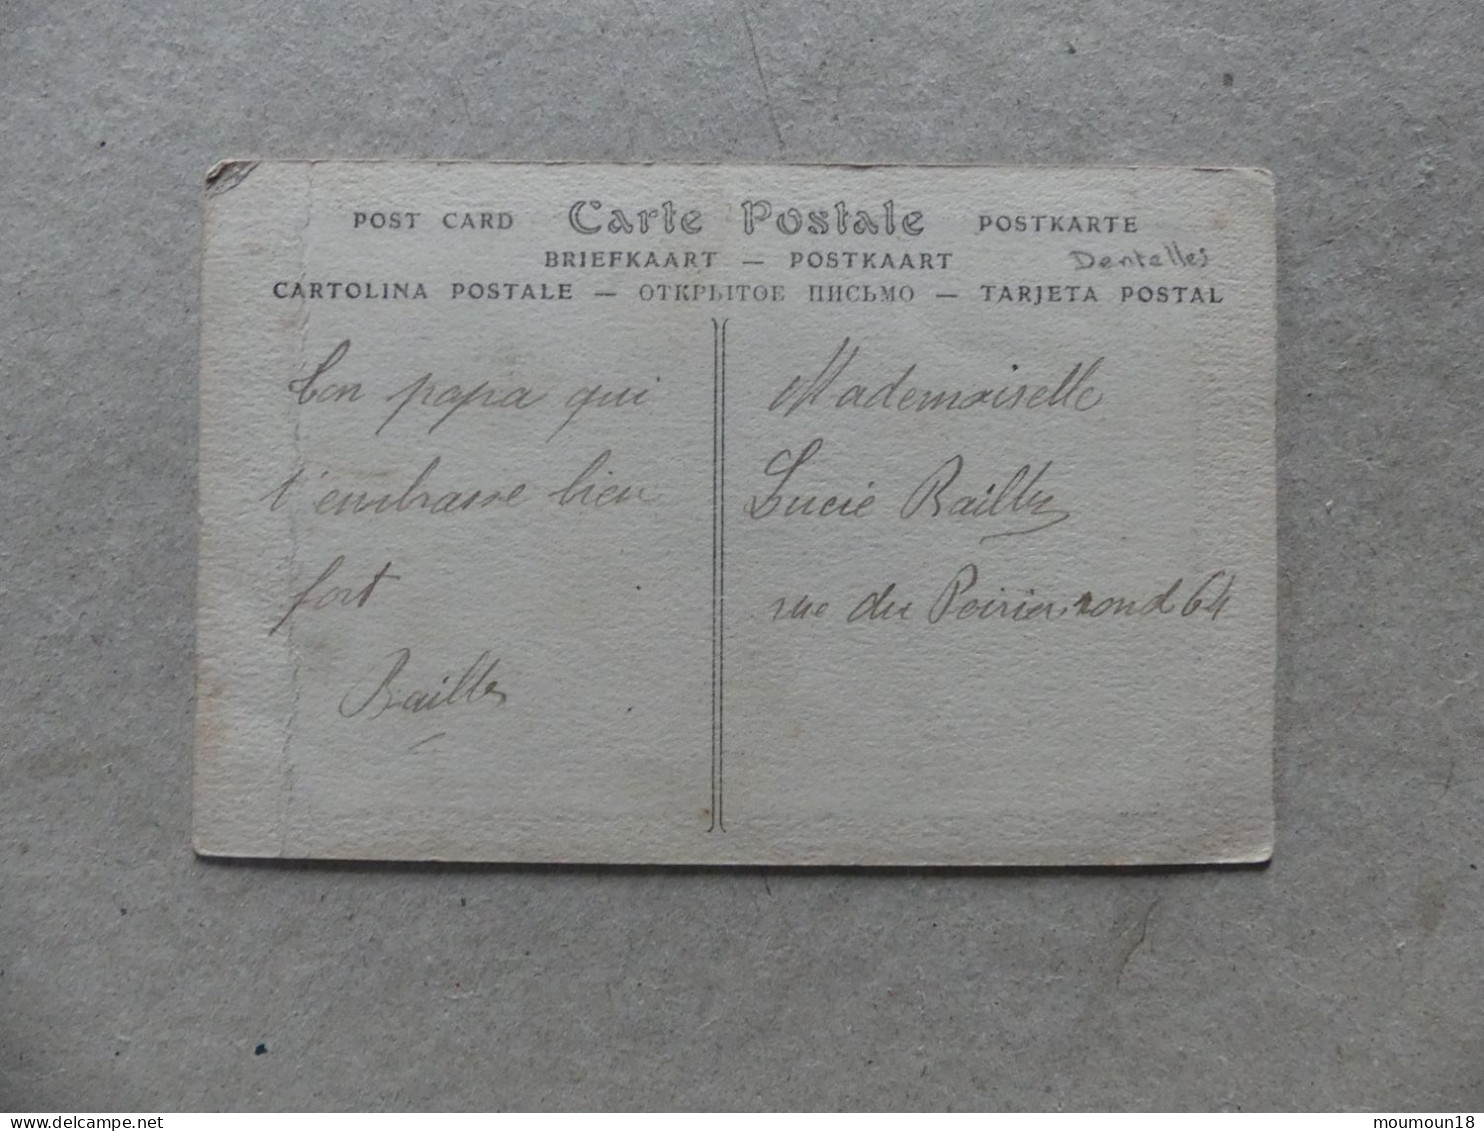 POST CARD Carte Postale POSTKARTE
BRIEFKAART — POSTKAART Dentelles
CARTOLINA POSTALE — ОТКРЫТОЕ ПИСЬМО — TARJETA POSTAL
Ton papa qui
t'embrasse bien
fort
Bailly
Mademoiselle
Lucie Bailly
rue du Poirier rond 64
moumoun18